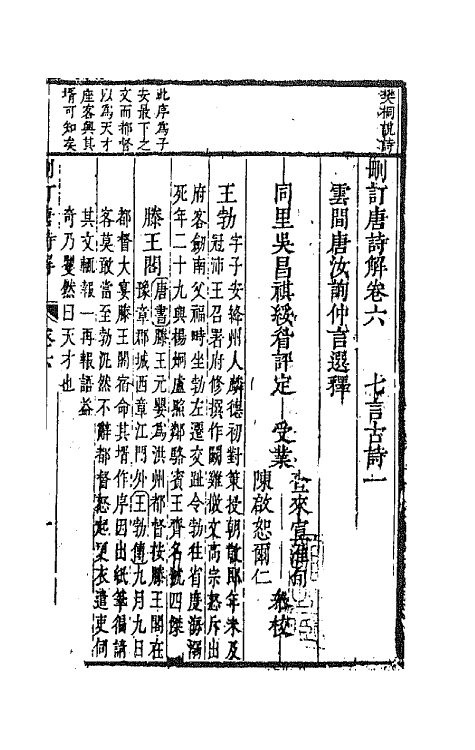 樊桐說詩
此序為子
安最下之
文而都督
以為天才
座客與其
壻可知矣
刪訂唐詩解卷六 七言古詩一
雲間唐汝詢仲言選釋
同里吳昌祺綏眉評定 受業
查來宜
陳啟恕爾仁 叅校
王勃 字子安絳州人麟德初對策授朝散郎年未及
冠沛王召署府修撰作鬭雞檄文高宗怒斥出
府客劒南父福時坐勃左遷交趾令勃往省度海溺
死年二十九與楊炯盧照鄰駱賓王齊名號四傑
滕王閣 唐書滕王元嬰為洪州都督按滕王閣在
豫章郡城西章江門外王勃傳九月九日
都督大宴滕王閣宿命其壻作序因出紙筆徧請
客莫敢當至勃沆然不辭都督怒起更衣遣吏伺
其文輒報一再報語益
奇乃矍然曰天才也
刪訂唐詩解 卷六 一